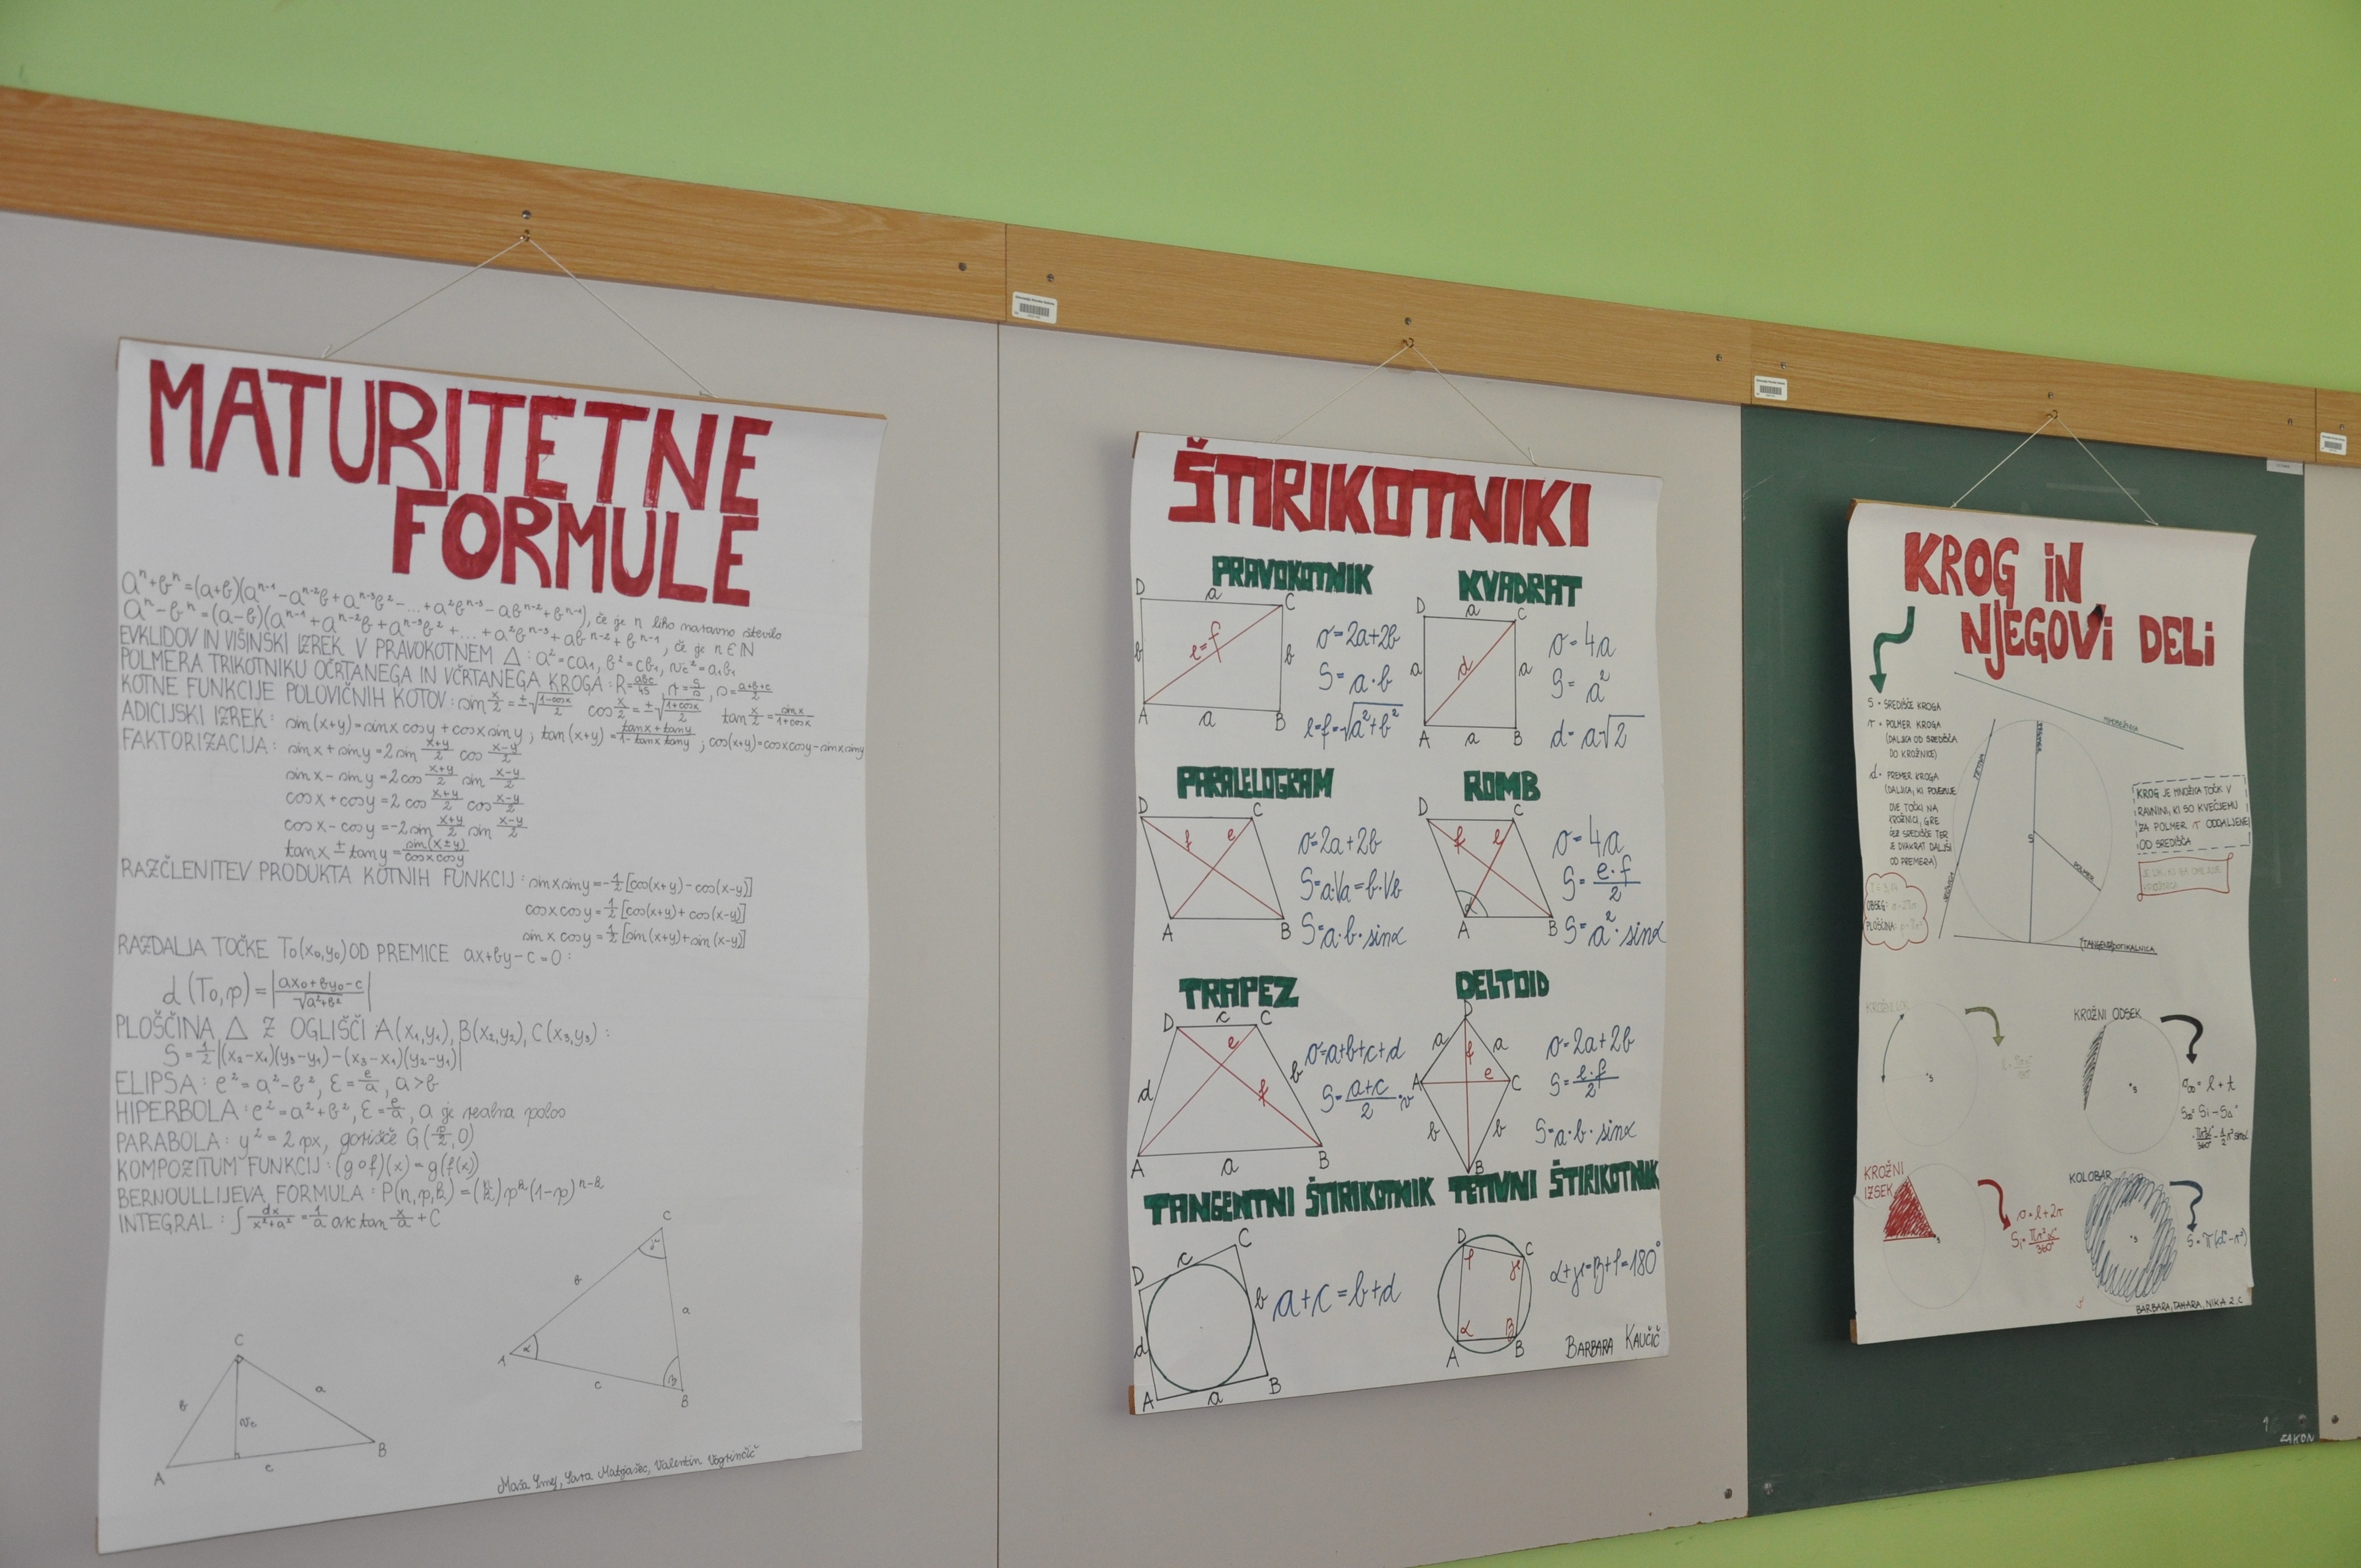 MATURITETNE
FORMULE
aⁿ+bⁿ=(a+b)(aⁿ⁻¹-aⁿ⁻²b+aⁿ⁻³b²-...+a²bⁿ⁻³-abⁿ⁻²+bⁿ⁻¹), če je n liho naravno število
aⁿ-bⁿ=(a-b)(aⁿ⁻¹+aⁿ⁻²b+aⁿ⁻³b²+...+a²bⁿ⁻³+abⁿ⁻²+bⁿ⁻¹, če je n∈ℕ
EVKLIDOV IN VIŠINSKI IZREK V PRAVOKOTNEM Δ: a²=ca₁, b²=cb₁, vc²=a₁b₁
POLMERA TRIKOTNIKU OČRTANEGA IN VČRTANEGA KROGA: R=abc/4S, r=S/s, s=(a+b+c)/2
KOTNE FUNKCIJE POLOVIČNIH KOTOV: sin x/2=±√((1-cosx)/2) cos x/2=±√((1+cosx)/2) tan x/2=sinx/(1+cosx)
ADICIJSKI IZREK: sin(x+y)=sinx cosy+cosx siny; tan(x+y)=(tanx+tany)/(1-tanx tany); cos(x+y)=cosxcosy-sinxsiny
FAKTORIZACIJA: sinx+siny=2sin (x+y)/2 cos (x-y)/2
sinx-siny=2cos (x+y)/2 sin (x-y)/2
cosx+cosy=2cos (x+y)/2 cos (x-y)/2
cosx-cosy=-2sin (x+y)/2 sin (x-y)/2
tanx±tany=sin(x±y)/(cosxcosy)
RAZČLENITEV PRODUKTA KOTNIH FUNKCIJ: sinxsiny=-1/2[cos(x+y)-cos(x-y)]
cosxcosy=1/2[cos(x+y)+cos(x-y)]
sinxcosy=1/2[sin(x+y)+sin(x-y)]
RAZDALJA TOČKE T₀(x₀,y₀) OD PREMICE ax+by-c=0:
d(T₀,p)=|(ax₀+by₀-c)/√(a²+b²)|
PLOŠČINA Δ Z OGLIŠČI A(x₁,y₁), B(x₂,y₂), C(x₃,y₃):
S=1/2|(x₂-x₁)(y₃-y₁)-(x₃-x₁)(y₂-y₁)|
ELIPSA: e²=a²-b², ε=e/a, a>b
HIPERBOLA: e²=a²+b², ε=e/a, a je realna polos
PARABOLA: y²=2px, gorišče G(p/2,0)
KOMPOZITUM FUNKCIJ: (g∘f)(x)=g(f(x))
BERNOULLIJEVA FORMULA: P(n,p,k)=(n k)pᵏ(1-p)ⁿ⁻ᵏ
INTEGRAL: ∫dx/(x²+a²)=1/a arc tan x/a+C
C
b a
vc
A c B
C
γ
b a
A α c β B
Valentin Vogrinčič
ŠTIRIKOTNIKI
PRAVOKOTNIK
D a C
b e=f b
A a B
o=2a+2b
S=a·b
e=f=√(a²+b²)
KVADRAT
D a C
a d a
A a B
o=4a
S=a²
d=a√2
PARALELOGRAM
D C
f e
A B
o=2a+2b
S=a·Va=b·Vb
S=a·b·sinα
ROMB
D C
f e
α
A B
o=4a
S=e·f/2
S=a²·sinα
TRAPEZ
D c C
e
d f b
A a B
o=a+b+c+d
S=(a+c)/2·v
DELTOID
D
a f a
A e C
b b
B
o=2a+2b
S=e·f/2
S=a·b·sinα
TANGENTNI ŠTIRIKOTNIK
D c C
d b
A a B
a+c=b+d
TETIVNI ŠTIRIKOTNIK
D C
γ
α β
A B
180°
BARBARA KAUČIČ
KROG IN
NJEGOVI DELI
S - SREDIŠČE KROGA
r - POLMER KROGA
(DALJICA OD SREDIŠČA
DO KROŽNICE)
d - PREMER KROGA
(DALJICA, KI POVEZUJE
DVE TOČKI NA
KROŽNICI, GRE
ČEZ SREDIŠČE TER
JE DVAKRAT DALJŠI
OD PREMERA)
OBSEG:
PLOŠČINA:
MIMOBEŽNICA
TETIVA
PREMER
S
POLMER
SEČNICA
(TANGENTA)DOTIKALNICA
KROG JE MNOŽICA TOČK V
RAVNINI, KI SO KVEČJEMU
ZA POLMER r ODDALJENE
OD SREDIŠČA
KROŽNI LOK
S
KROŽNI ODSEK
S
KROŽNI
IZSEK
S
o=l+2r
Si=πr²α/360°
KOLOBAR
S
BARBARA, TAMARA, NIKA 2.C
ZAKON